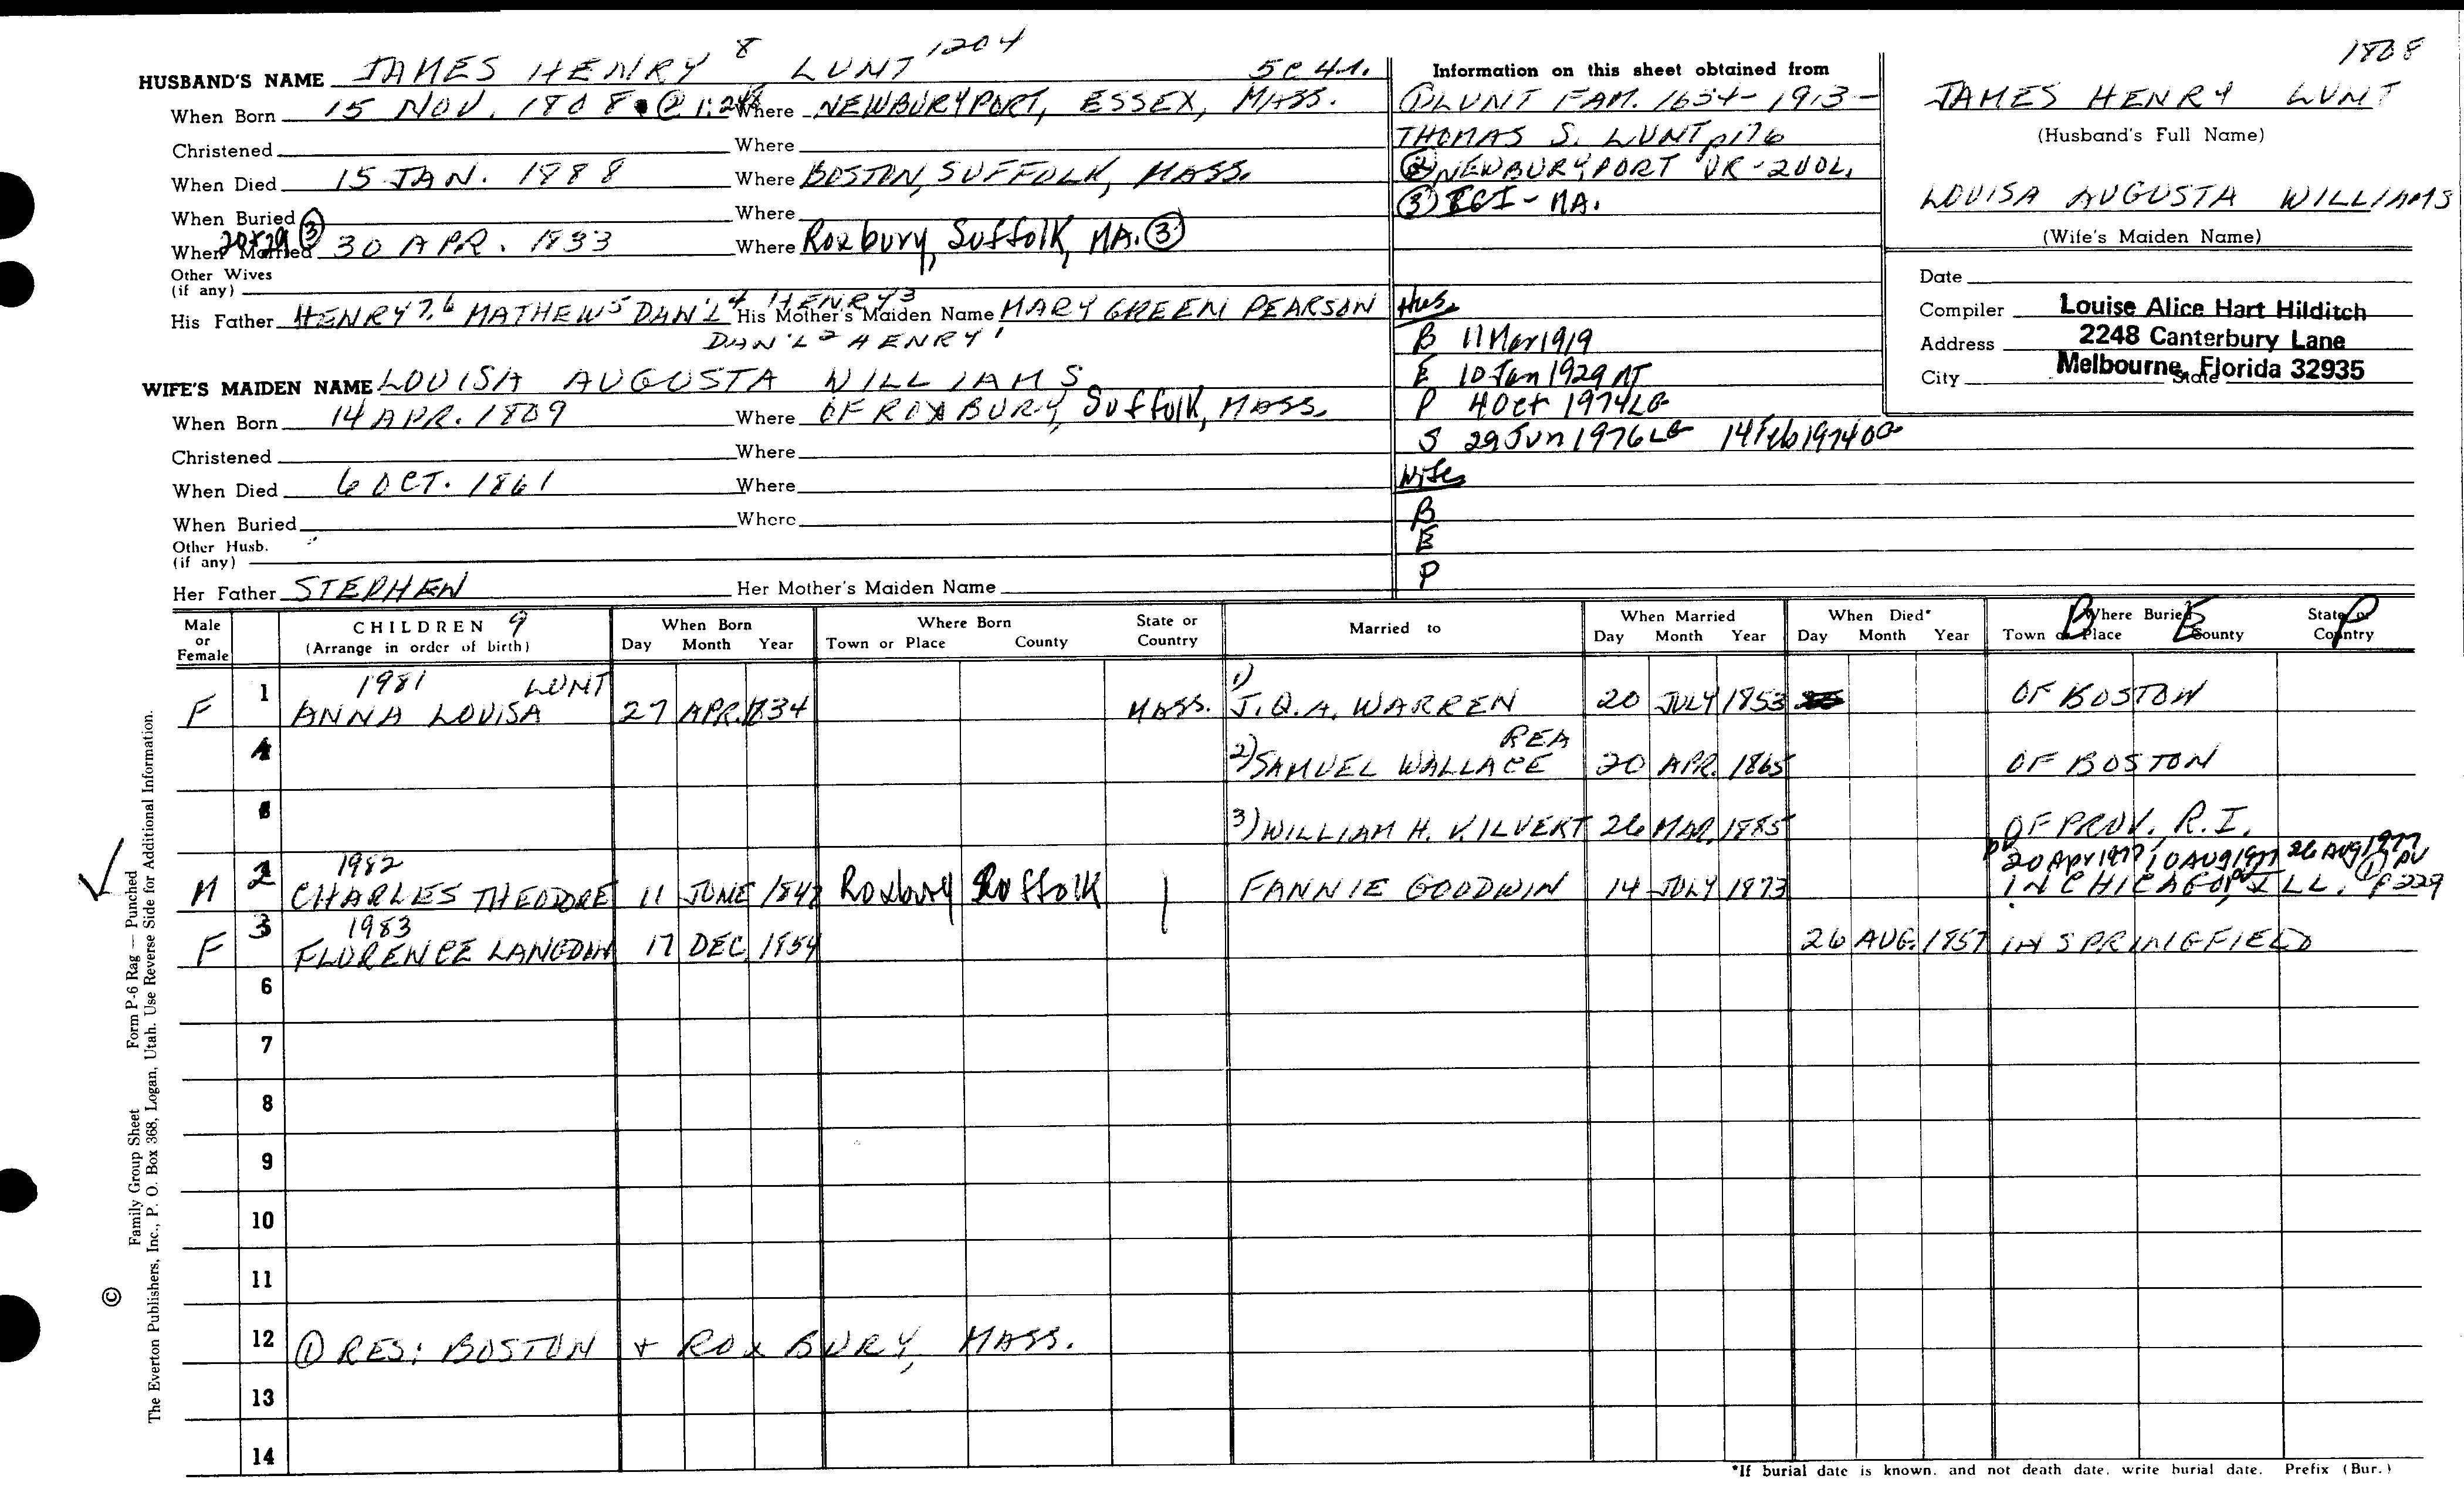 1204
1808
HUSBAND'S NAME JAMES HENRY 8 LUNT
When Born 15 NOV. 1808 Where NEWBURYPORT, ESSEX, MASS.
Christened Where
When Died 15 JAN. 1888 Where BOSTON, SUFFOLK, MASS.
When Buried Where
When Married ③ 30 APR. 1833 Where Roxbury, Suffolk, MA. ③
Other Wives
(if any)
His Father HENRY 7,6 MATHEW 5 DAN'L 4 HENRY 3 His Mother's Maiden Name MARY GREEN PEARSON
DAN'L 2 HENRY 1
WIFE'S MAIDEN NAME LOUISA AUGUSTA WILLIAMS
When Born 14 APR. 1809 Where OF ROXBURY, Suffolk, MASS.
Christened Where
When Died 6 OCT. 1861 Where
When Buried Where
Other Husb.
(if any)
Her Father STEPHEN Her Mother's Maiden Name
Information on this sheet obtained from
① LUNT FAM. 1654-1913-
THOMAS S. LUNT p176
② NEWBURYPORT VR-2VOL.
③ - MA.
Hus.
B 11 Mar 1919
E 10 Jan 1929 
P 4 Oct 1974 LG
S 29 Jun 1976 LG 14 Feb 1974 OG
Wife
B
E
P
JAMES HENRY LUNT
(Husband's Full Name)
LOUISA AUGUSTA WILLIAMS
(Wife's Maiden Name)
Date
Compiler Louise Alice Hart Hilditch
Address 2248 Canterbury Lane
City Melbourne, Florida 32935 State
Male or Female CHILDREN 9 (Arrange in order of birth) When Born Day Month Year Where Born Town or Place County State or Country Married to When Married Day Month Year When Died* Day Month Year Where Buried Town or Place County State or Country B E P
1981 LUNT
F 1 ANNA LOUISA 27 APR. 1834 MASS. 1) J.Q.A. WARREN 20 JULY 1853 OF BOSTON
REA
4 2) SAMUEL WALLACE 20 APR. 1865 OF BOSTON
5 3) WILLIAM H. KILVERT 26 MAR. 1885 OF PROV., R.I.
1982 20 Apr 1977 10 AUG 1977 26 Aug 1977 PV
M 2 CHARLES THEODORE 11 JUNE 1842 Roxbury Suffolk FANNIE GOODWIN 14 JULY 1873 IN CHICAGO, ILL. ① P229
1983
F 3 FLORENCE LANGDON 17 DEC. 1854 26 AUG. 1857 IN SPRINGFIELD
6
7
8
9
10
11
12 ① RES: BOSTON + ROXBURY, MASS.
13
14
*If burial date is known, and not death date, write burial date. Prefix (Bur.)
© Family Group Sheet Form P-6 Rag — Punched
The Everton Publishers, Inc., P. O. Box 368, Logan, Utah. Use Reverse Side for Additional Information.